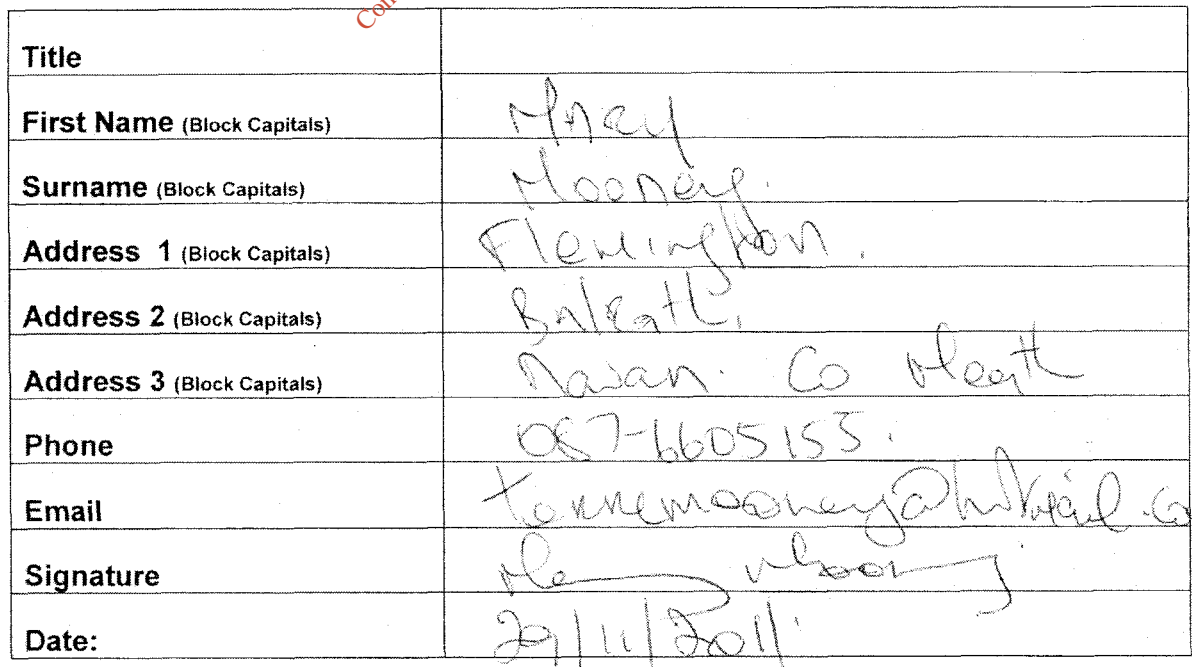 Title
First Name (Block Capitals) Mary
Surname (Block Capitals) Mooney.
Address 1 (Block Capitals) Flemington.
Address 2 (Block Capitals) Balrath,
Address 3 (Block Capitals) Navan. Co Meath
Phone 087-6605153.
Email
Signature Mary Mooney
Date: 29/11/2011.